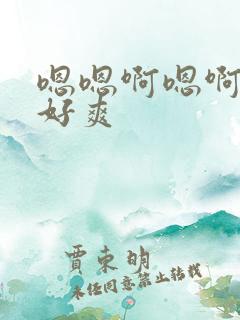 嗯嗯啊嗯啊
好爽
贾东明
未任同意禁止转载